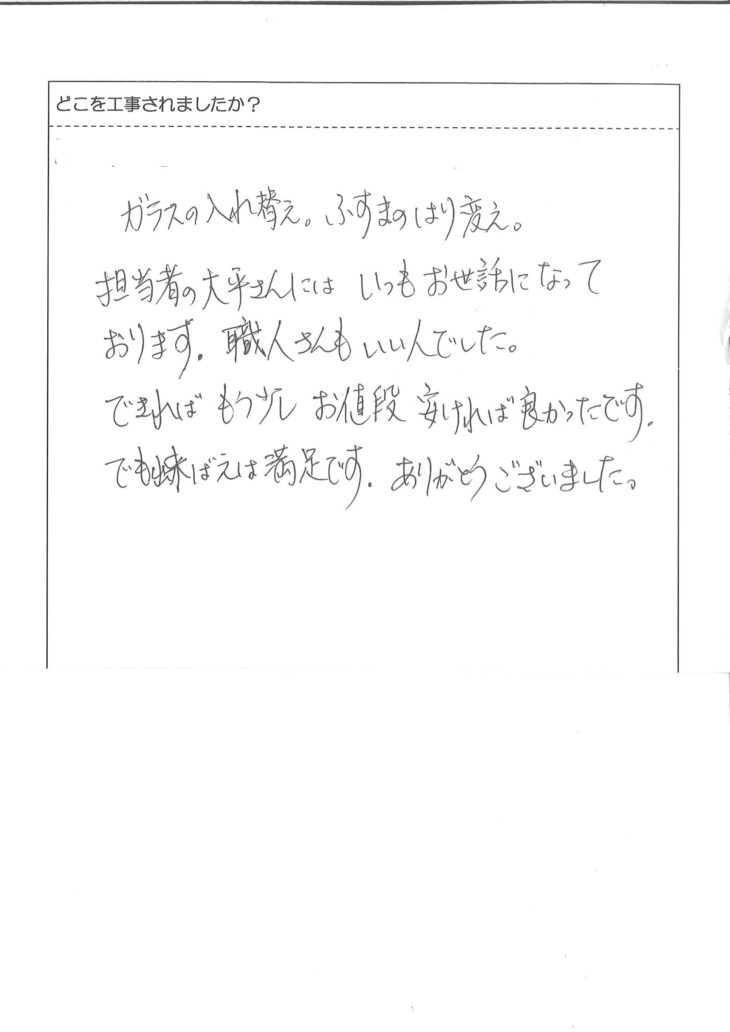 どこを工事されましたか？
ガラスの入れ替え。ふすまのはり変え。
担当者の大平さんには いつもお世話になって
おります。職人さんもいい人でした。
できれば もう少し お値段 安ければ良かったです。
でも出来ばえは満足です。ありがとうございました。